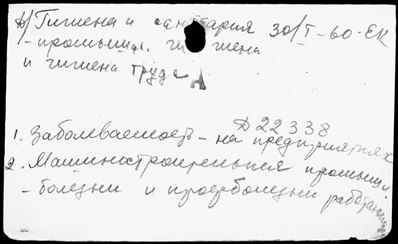 Д/ Гигиена и санитария 30/I-60-ЕК
- промышл. гигиена
и гигиена труда
Д 22338
1. Заболеваемость - на предприятиях
2. Машиностроительная промышл.
- болезни и профболезни рабочих